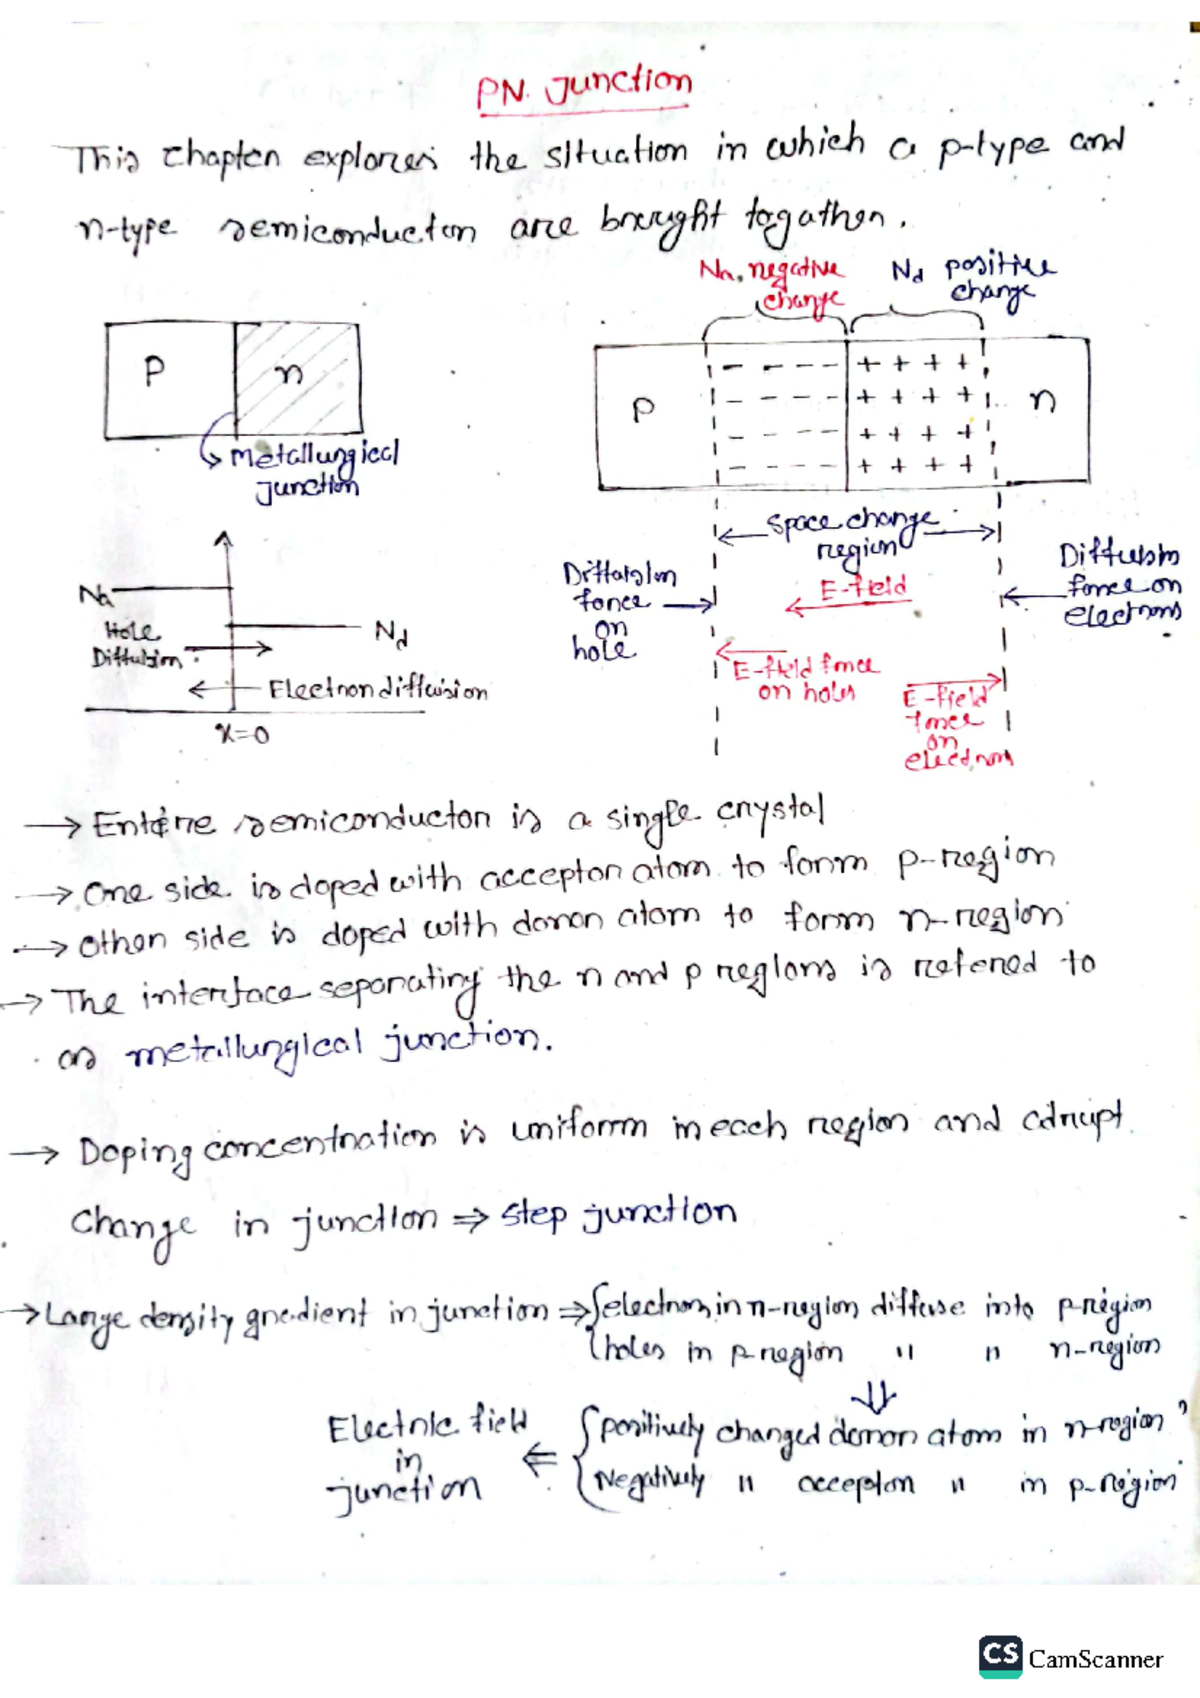 PN Junction
This chapter explores the situation in which a p-type and
n-type semiconductor are brought togather.
Na, negative
charge
Nd positive
charge
P
n
Metallurgical
junction
p
- - - - + + + +
- - - - + + + +
- - - - + + + +
- - - - + + + +
n
Space charge
region
E-field
Diffusion
force
on
hole
Diffusion
force on
electrons
E-field force
on holes
E-field
force
on
electron
Na
Hole
Diffusion
Nd
Electron diffusion
x=0
→ Entire semiconductor is a single crystal
→ One side is doped with acceptor atom to form p-region
→ Other side is doped with donor atom to form n-region
→ The interface separating the n and p regions is refered to
as metallurgical junction.
→ Doping concentration is uniform in each region and abrupt
change in junction ⇒ step junction
→ Large density gradient in junction ⇒ { electrons in n-region diffuse into p-region
holes in p-region " " n-region
⇓
Electric field
in
junction
⇐
{ positively charged donor atom in n-region
Negatively " acceptor " in p-region
CS CamScanner